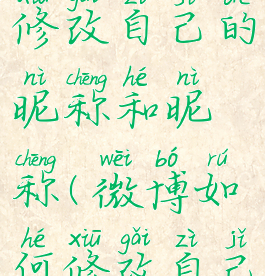 xiū gǎi zì jǐ de
修改自己的
nì chēng hé nì
昵称和昵
chēng wēi bó rú
称(微博如
hé xiū gǎi zì jǐ
何修改自己